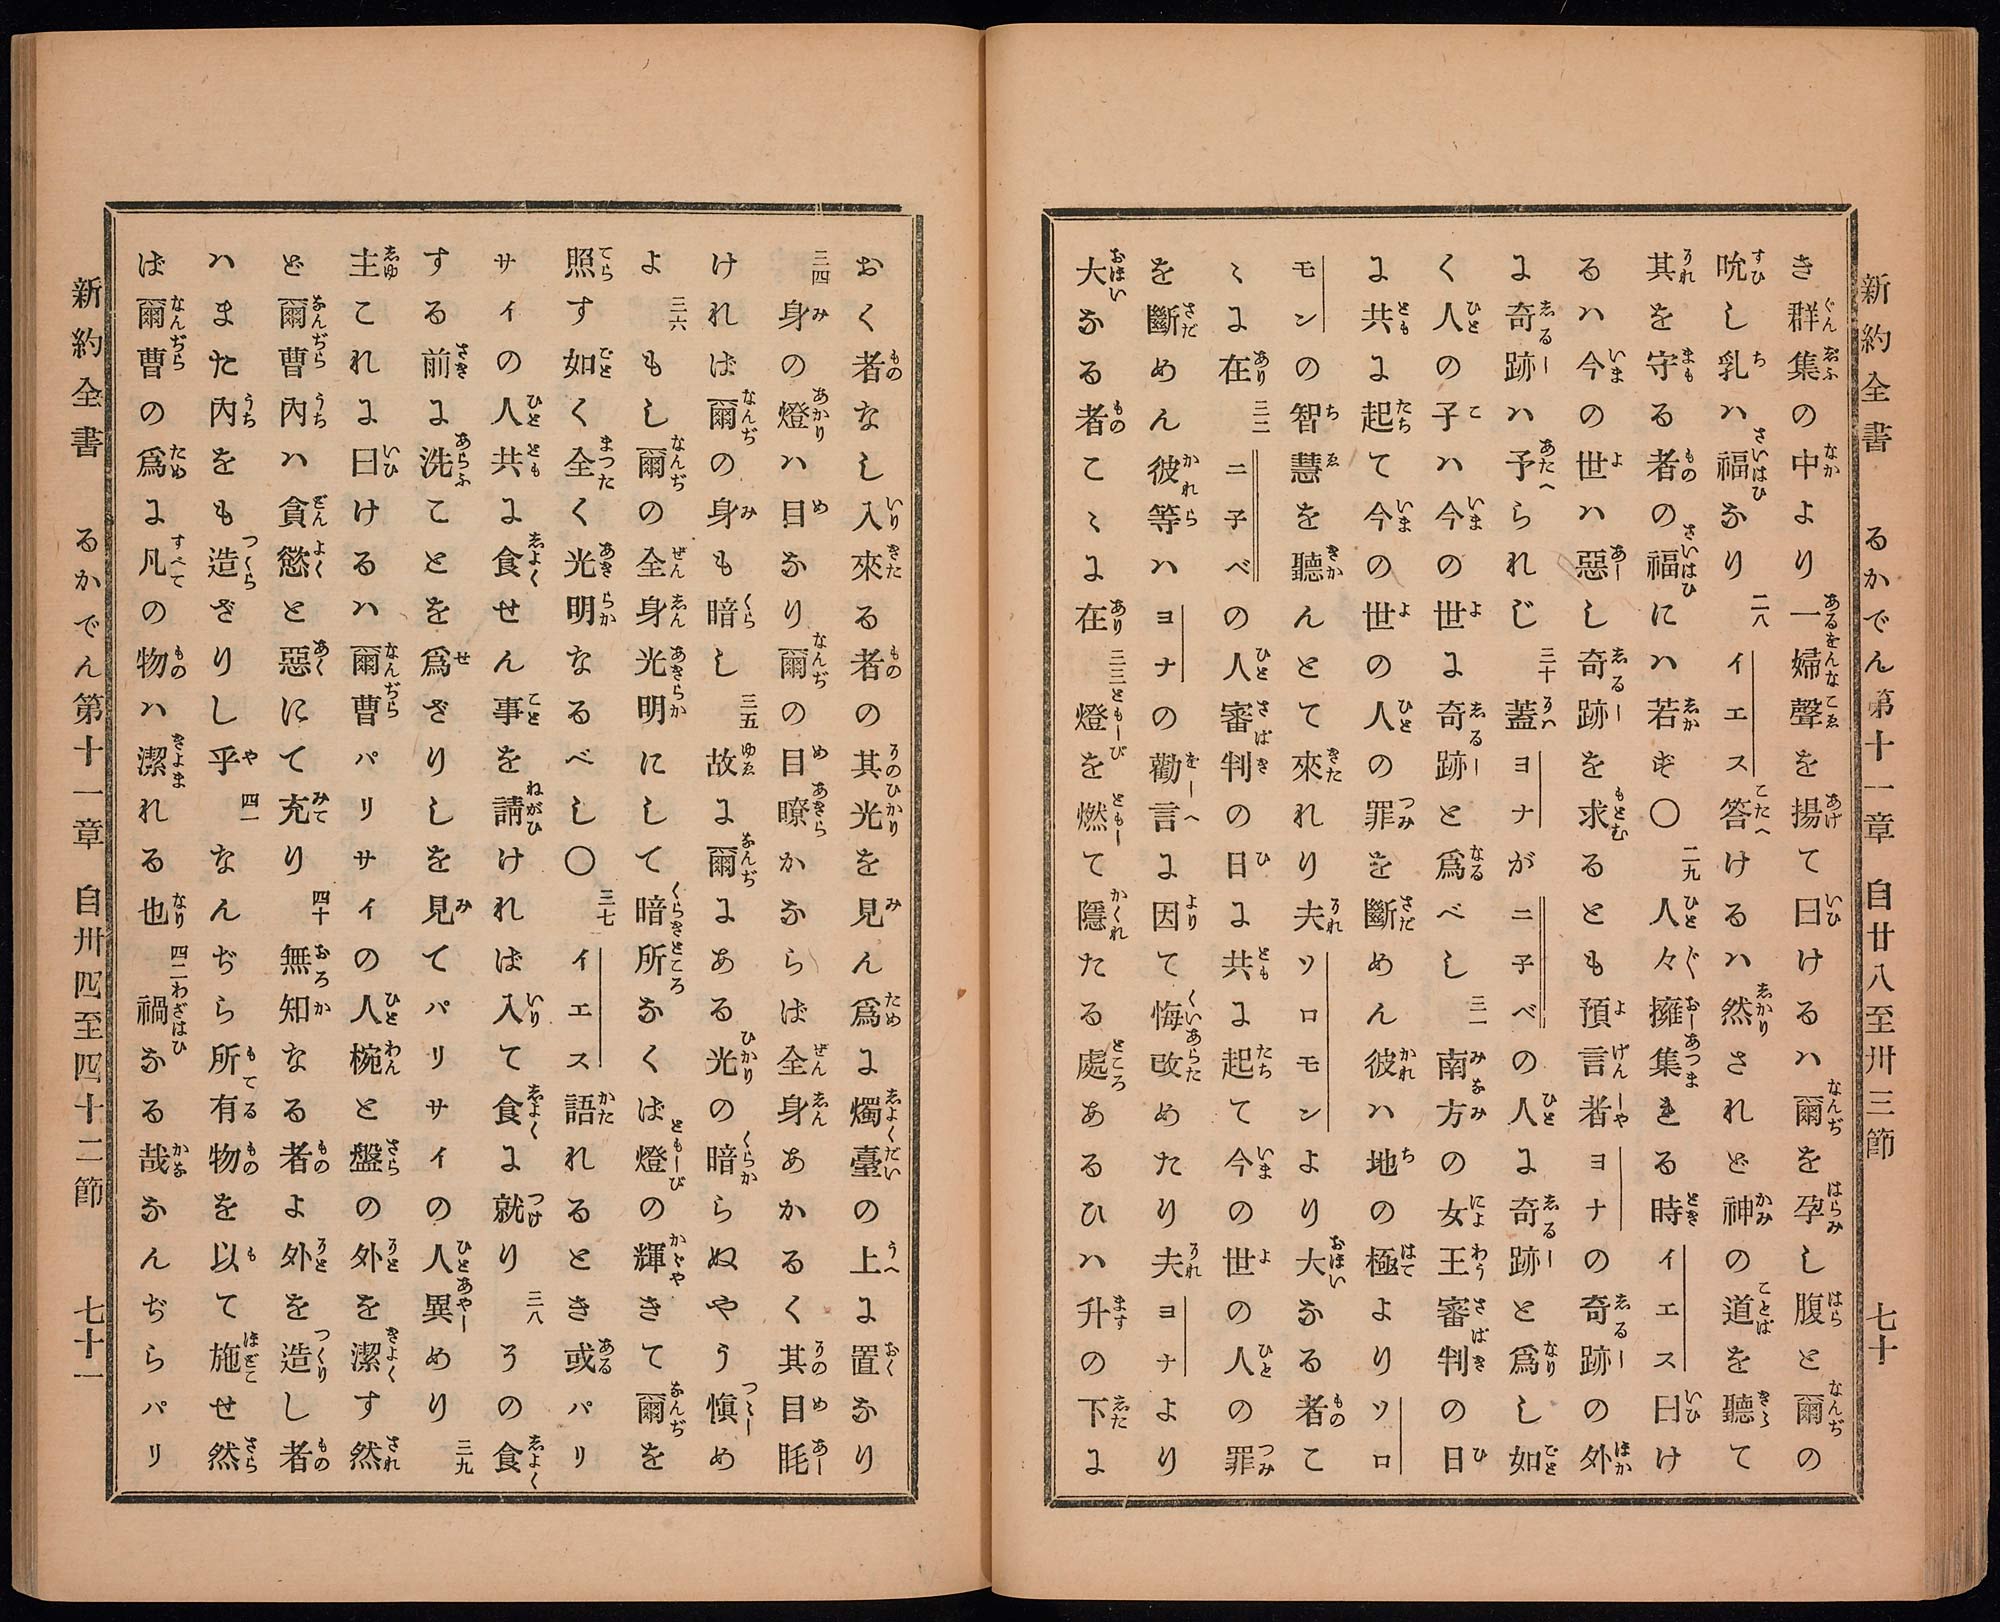 新約全書　るかでん第十一章　自廿八至卅三節　七十
き群集の中より一婦聲を揚て曰けるハ爾を孕し腹と爾の
吮し乳ハ福なり二八イエス答けるハ然されど神の道を聽て
其を守る者の福にハ若ず〇二九人々擁集れる時イエス曰け
るハ今の世ハ惡し奇跡を求るとも預言者ヨナの奇跡の外
に奇跡ハ予られじ三十蓋ヨナがニ子ベの人に奇跡と爲し如
く人の子ハ今の世に奇跡と爲べし三一南方の女王審判の日
に共に起て今の世の人の罪を斷めん彼ハ地の極よりソロ
モンの智慧を聽んとて來れり夫ソロモンより大なる者こ
ゝに在三二ニ子ベの人審判の日に共に起て今の世の人の罪
を斷めん彼等ハヨナの勸言に因て悔改めたり夫ヨナより
大なる者こゝに在三三燈を燃て隱たる處あるひハ升の下に
おく者なし入來る者の其光を見ん爲に燭臺の上に置なり
三四身の燈ハ目なり爾の目瞭かならば全身あかるく其目眊
ければ爾の身も暗し三五故に爾にある光の暗らぬやう愼め
よ三六もし爾の全身光明にして暗所なくば燈の輝きて爾を
照す如く全く光明なるべし〇三七イエス語れるとき或パリ
サイの人共に食せん事を請ければ入て食に就り三八その食
する前に洗ことを爲ざりしを見てパリサイの人異めり三九
主これに曰けるハ爾曹パリサイの人椀と盤の外を潔す然
ど爾曹內ハ貪慾と惡にて充り四十無知なる者よ外を造し者
ハまた內をも造ざりし乎四一なんぢら所有物を以て施せ然
ば爾曹の爲に凡の物ハ潔れる也四二禍なる哉なんぢらパリ
新約全書　るかでん第十一章　自卅四至四十二節　七十一